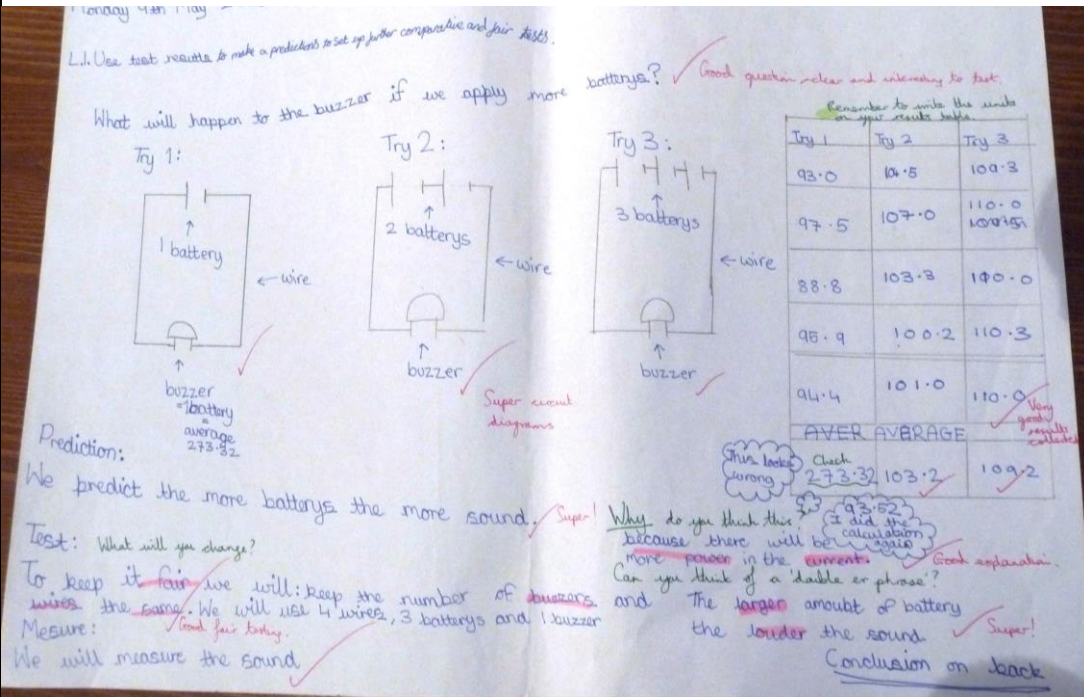 Monday 4th May
L.I. Use test results to make a predictions to set up further comparative and fair tests.
What will happen to the buzzer if we apply more batterys?
Good question clear and interesting to test.
Remember to write the units
on your results table.
Try 1:
1 battery
wire
buzzer
=1battery
=
average
273.32
Try 2:
2 batterys
wire
buzzer
Super circuit
diagrams
Try 3:
3 batterys
wire
buzzer
Try 1 Try 2 Try 3
93.0 104.5 109.3
97.5 107.0 110.0
88.8 103.3 100.0
95.9 100.2 110.3
94.4 101.0 110.0
Very
good
results
collected
AVER AVERAGE
This looks
wrong
Check
273.32 103.2 109.2
93.52
I did the
calculation
again
Prediction:
We predict the more batterys the more sound.
Super!
Why do you think this?
because there will be
more power in the current.
Good explanation.
Can you think of a 'double er phrase'?
The larger amoubt of battery
the louder the sound
Super!
Test: What will you change?
To keep it fair we will: keep the number of buzzers and
wires the same. We will use 4 wires, 3 batterys and 1 buzzer
Good fair testing.
Mesure:
We will measure the sound
Conclusion on back